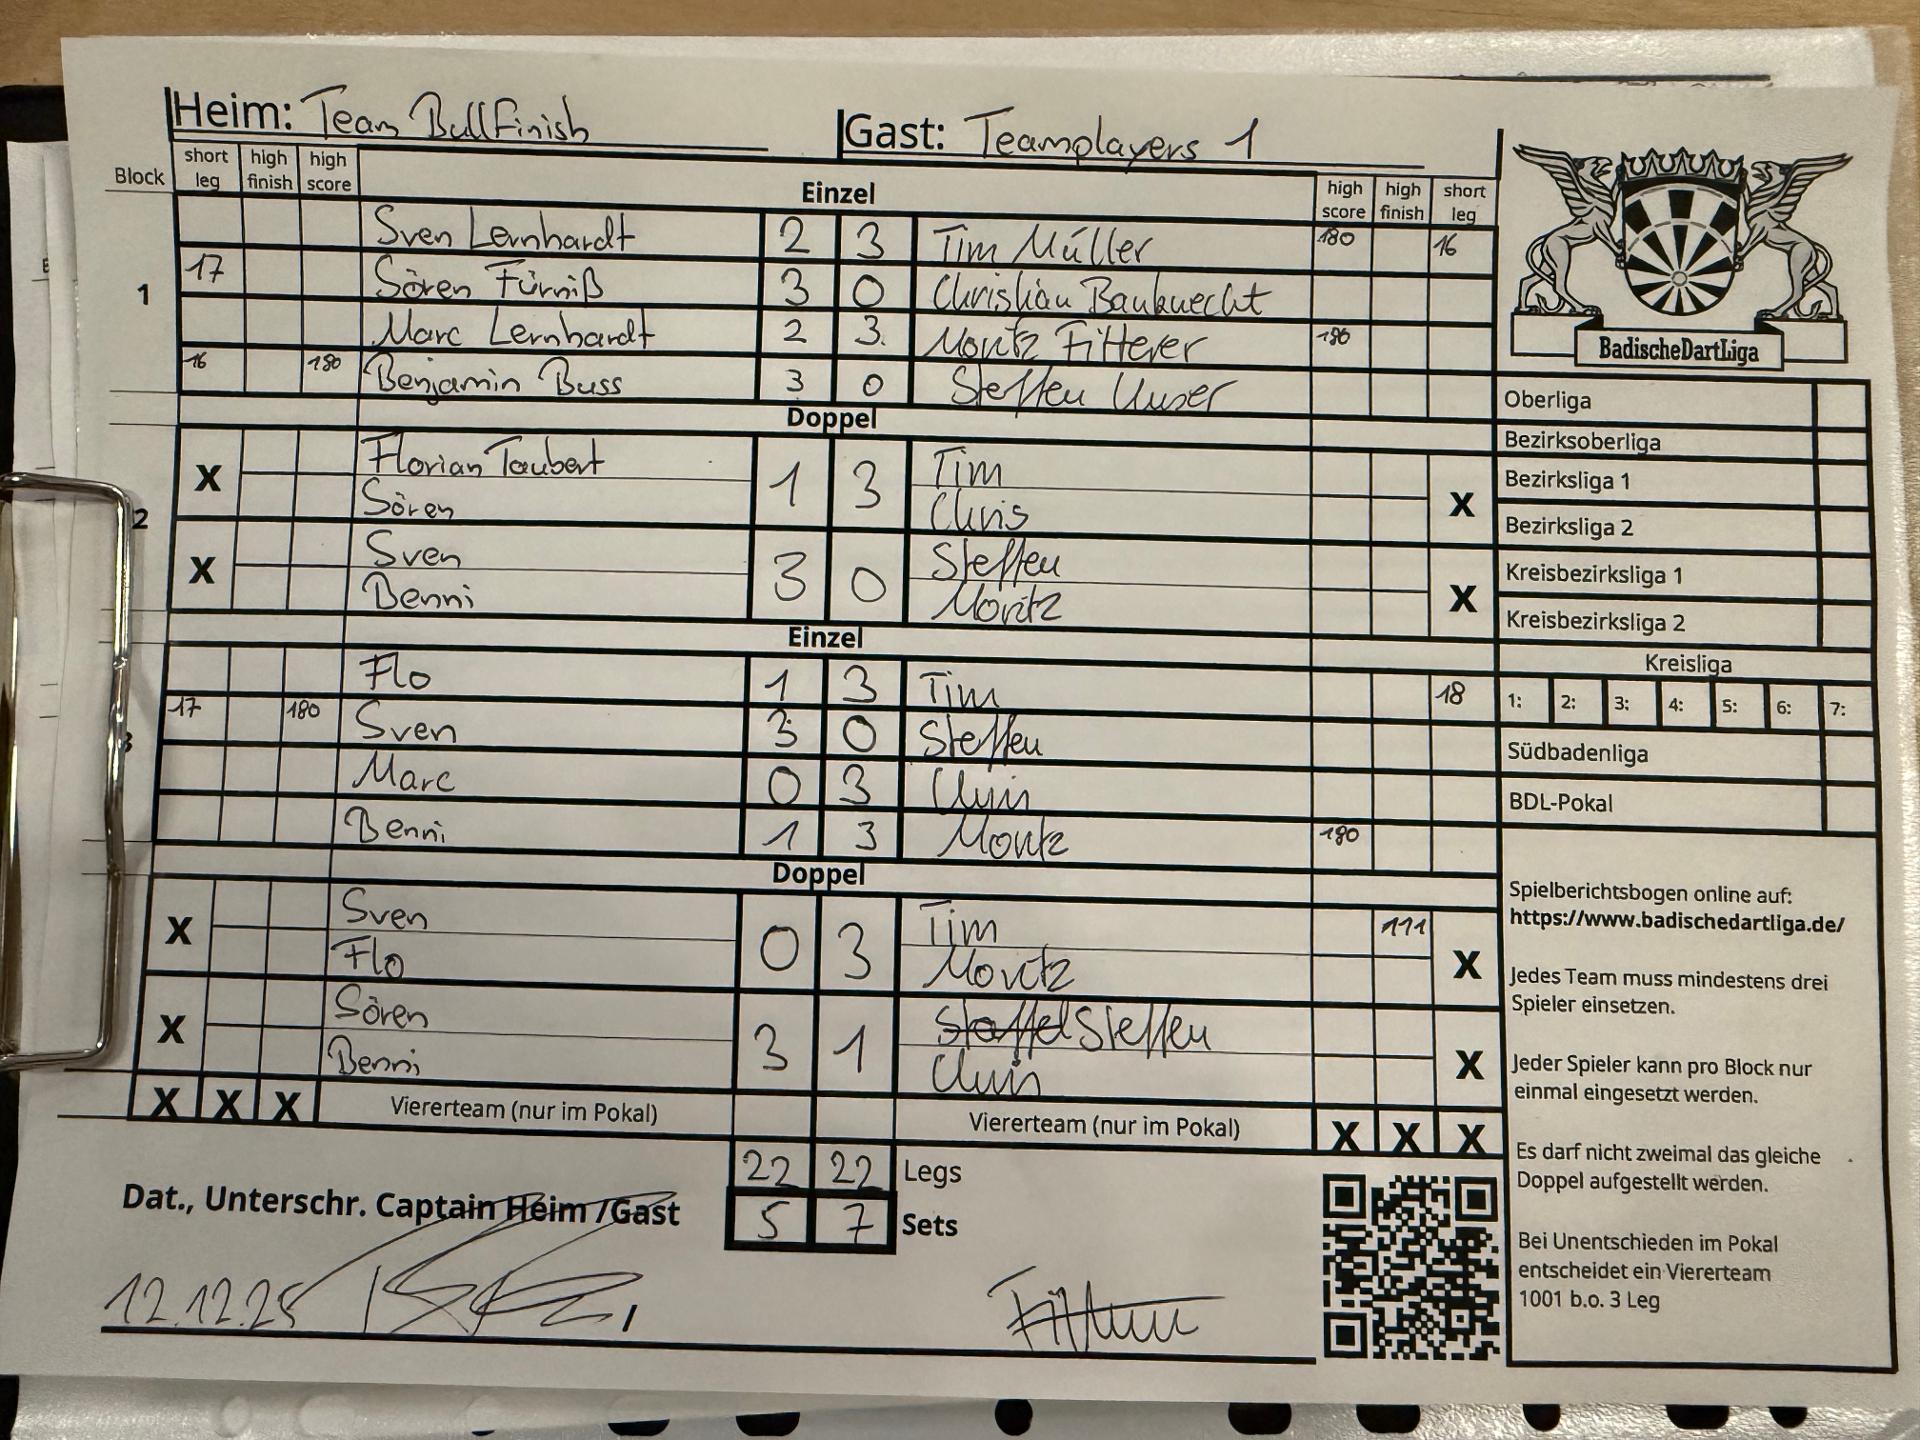 Heim: Team Bullfinish Gast: Teamplayers 1
Block short leg high finish high score Einzel high score high finish short leg
Sven Lernhardt 2 3 Tim Müller 180 16
1 17 Sören Fürniß 3 0 Christian Bauknecht
Marc Lernhardt 2 3 Moritz Fitterer 180
16 180 Benjamin Buss 3 0 Steffen Unser
Doppel
X Florian Taubert 1 3 Tim X
Sören Chris
2
X Sven 3 0 Steffen X
Benni Moritz
Einzel
Flo 1 3 Tim 18
3 17 180 Sven 3 0 Steffen
Marc 0 3 Chris
Benni 1 3 Moritz 180
Doppel
X Sven 0 3 Tim 111 X
Flo Moritz
X Sören 3 1 Steffen X
Benni Chris
X X X Viererteam (nur im Pokal) Viererteam (nur im Pokal) X X X
22 22 Legs
5 7 Sets
Dat., Unterschr. Captain Heim /Gast
12.12.25
BadischeDartLiga
Oberliga
Bezirksoberliga
Bezirksliga 1
Bezirksliga 2
Kreisbezirksliga 1
Kreisbezirksliga 2
Kreisliga
1: 2: 3: 4: 5: 6: 7:
Südbadenliga
BDL-Pokal
Spielberichtsbogen online auf:
https://www.badischedartliga.de/
Jedes Team muss mindestens drei
Spieler einsetzen.
Jeder Spieler kann pro Block nur
einmal eingesetzt werden.
Es darf nicht zweimal das gleiche
Doppel aufgestellt werden.
Bei Unentschieden im Pokal
entscheidet ein Viererteam
1001 b.o. 3 Leg